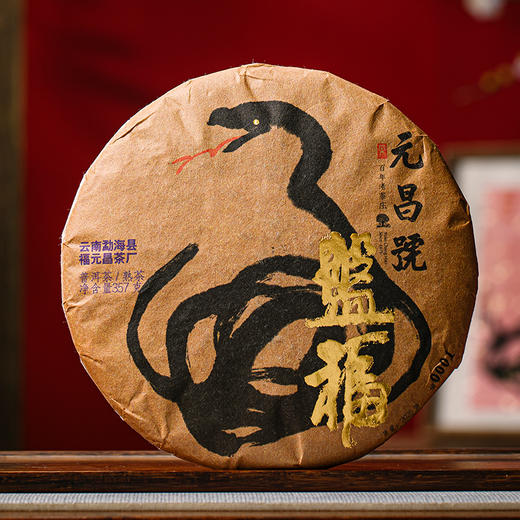 元昌號
百年老茶庄
云南勐海县
福元昌茶厂
普洱茶/熟茶
净含量357克
盤福
0001